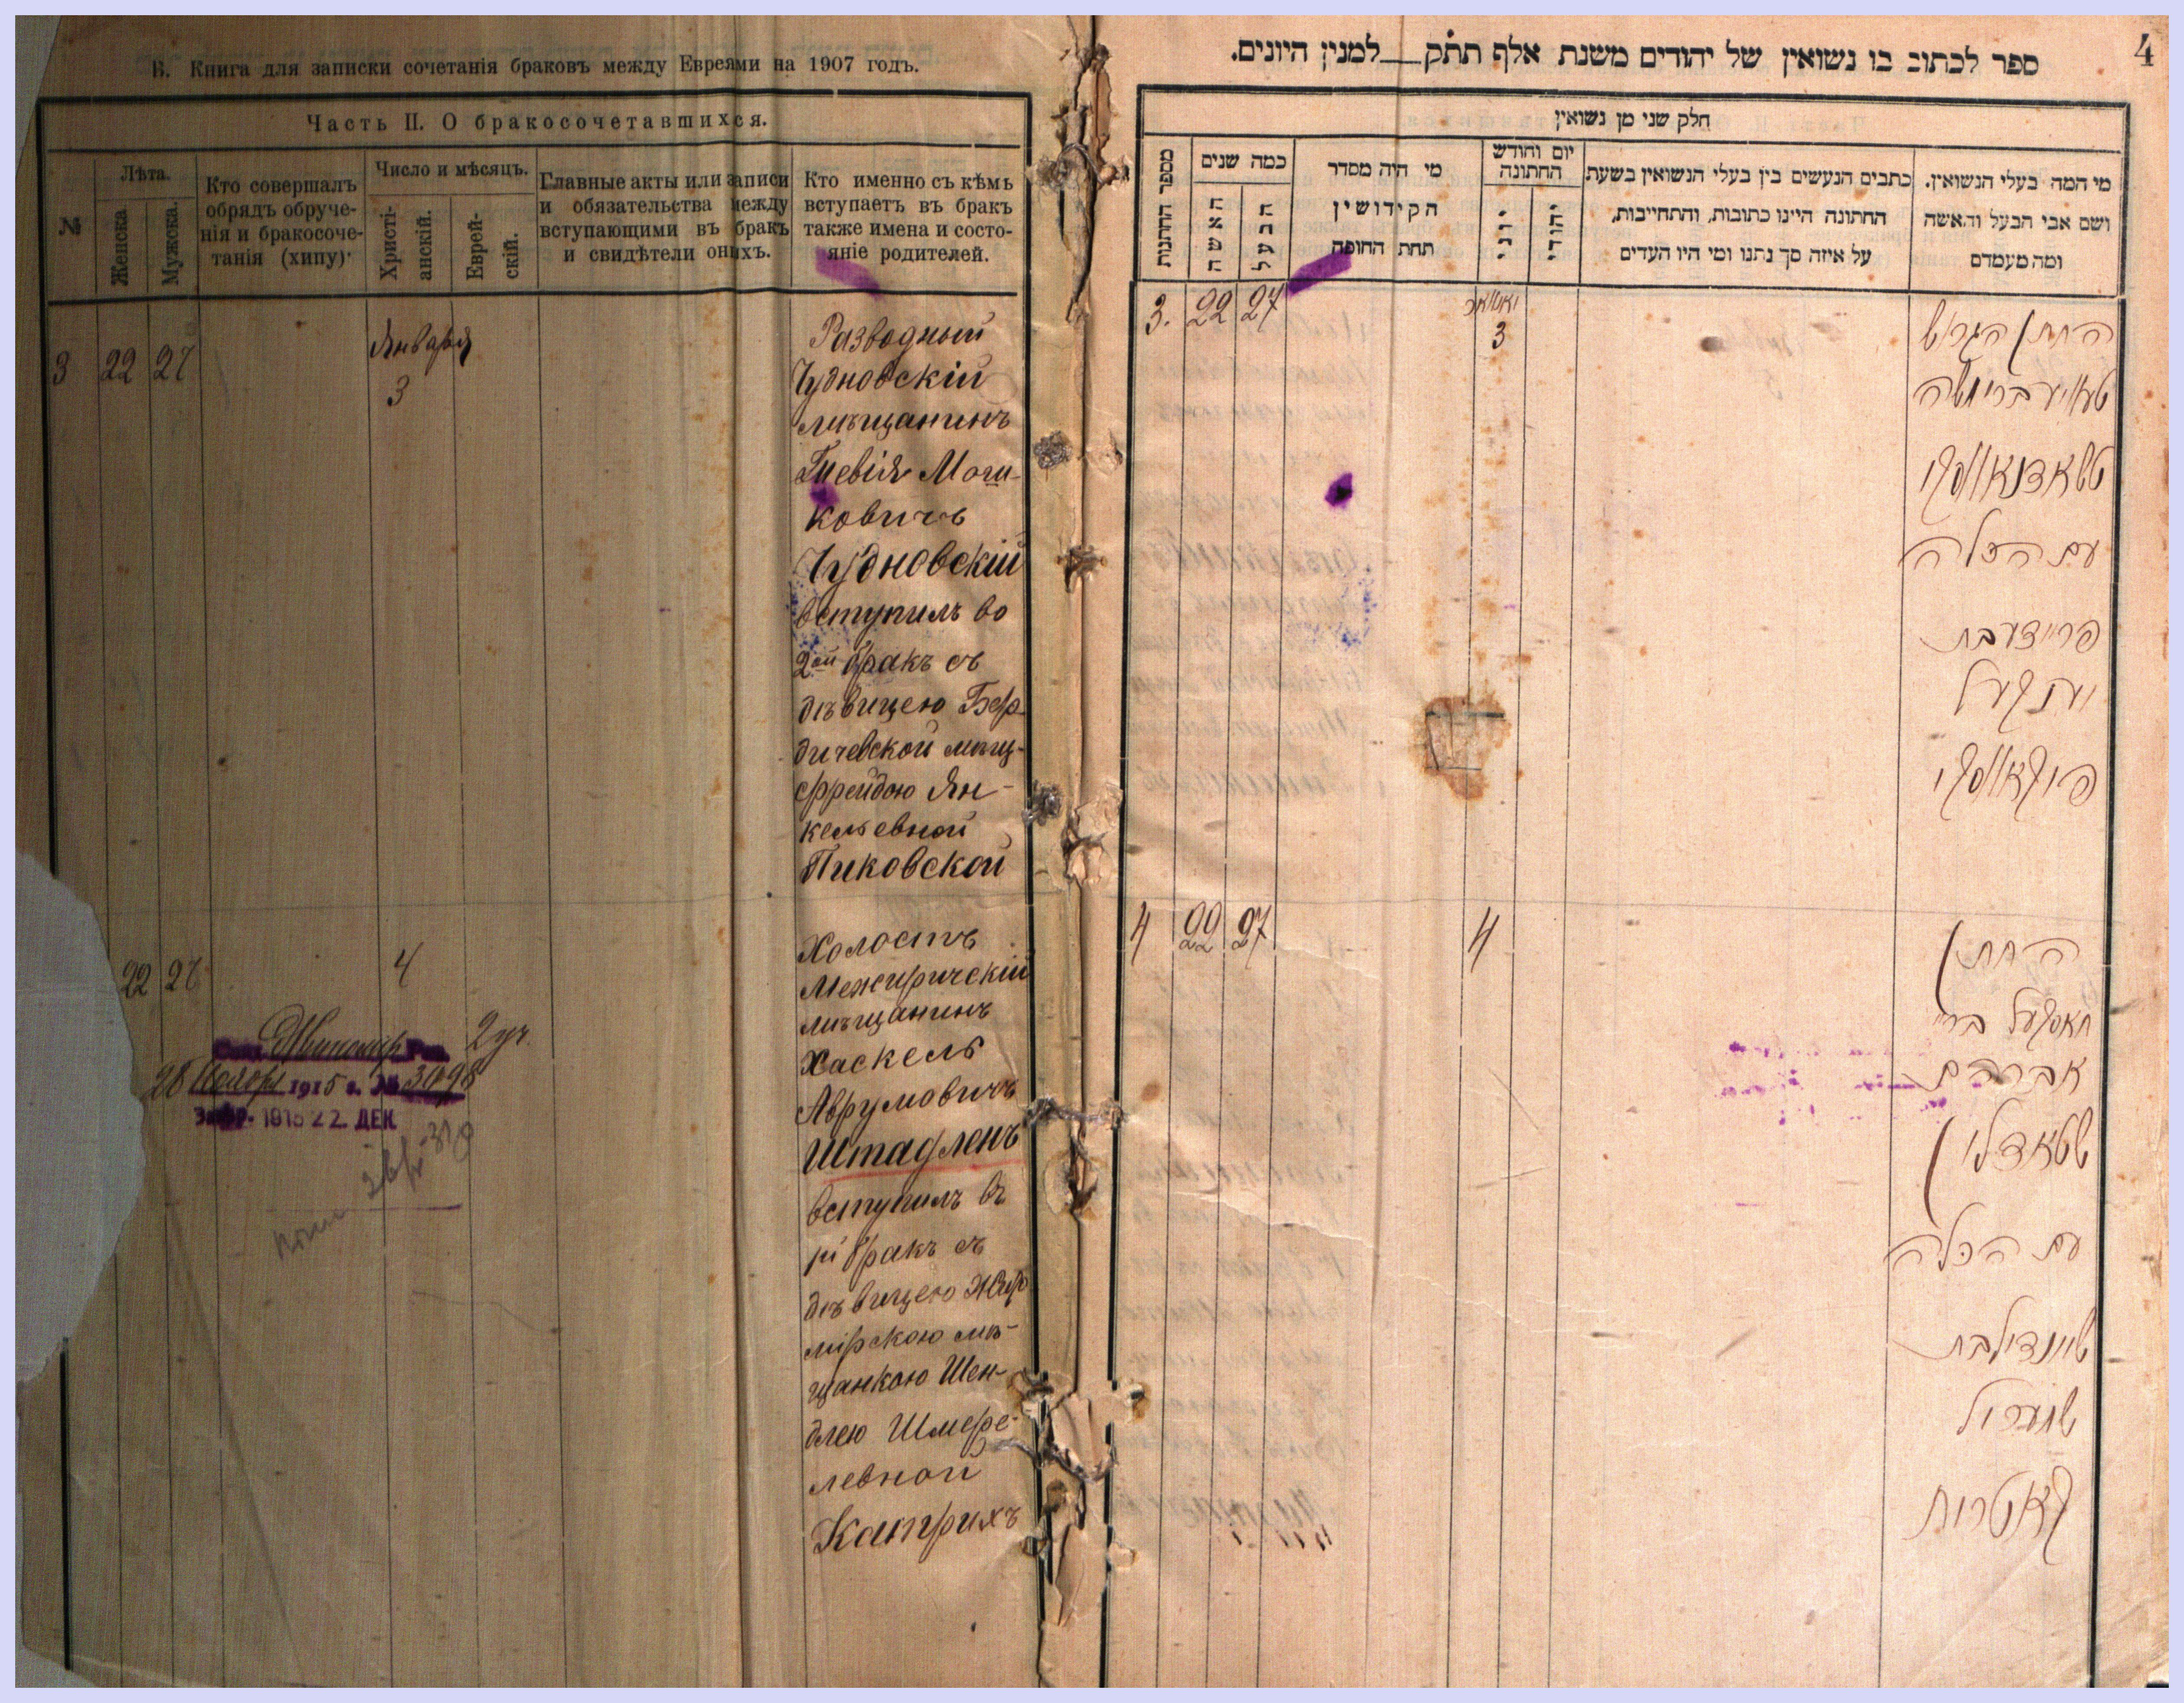 В. Книга для записки сочетанія браковъ между Евреями на 1907 годъ.
Часть II. О бракосочетавшихся.
№
Лѣта.
Женска.
Мужска.
Кто совершалъ
обрядъ обруче-
нія и бракосоче-
танія (хипу)·
Число и мѣсяцъ.
Христі-
анскій.
Еврей-
скій.
Главные акты или записи
и обязательства между
вступающими въ бракъ
и свидѣтели онихъ.
Кто именно съ кѣмъ
вступаетъ въ бракъ
также имена и состо-
яніе родителей.
3 22 27
Января
3
Разводный
Чудновскій
мѣщанинъ
Мош-
ковичъ
Чудновскій
вступилъ во
2ой бракъ съ
дѣвицею Бер-
дичевской мѣщ-
Фрейдою Ян-
кельевной
Пиковской
22 27
4
Холостъ
Межиричскій
мѣщанинъ
Хаскель
Аврумовичъ
Штадленъ
вступилъ въ
бракъ съ
дѣвицею Жито
мірскою мѣ-
щанкою Шен-
длею Шмере-
левной
Катрихъ
2 уч.
28 Ноября 1915 г. № 3498
22 ДЕК
4
ספר לכתוב בו נשואין של יהודים משנת אלף תתק למנין היונים.
חלק שני מן נשואין
מספר החתנות
כמה שנים
האשה
הבעל
מי היה מסדר
הקידושין
תחת החופה
יום וחודש
החתונה
יוני
יהודי
כתבים הנעשים בין בעלי הנשואין בשעת
החתונה היינו כתובות, והתחייבות,
על איזה סך נתנו ומי היו העדים
מי המה בעלי הנשואין.
ושם אבי הבעל והאשה
ומה מעמדם
3. 22 27
יאנואר
3
החתן הגרוש
טשאדנאווסקי
עם הכלה
פריידע בת
יענקעל
פיקאווסקי
4 22 27
4
החתן
חאסקעל בריי
אברהם
שטאדלין
עם הכלה
שיינדיל בת
שמעריל
קאטריך